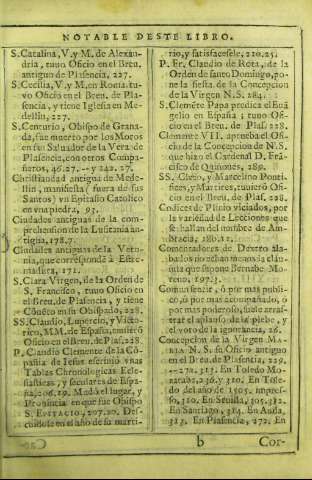 NOTABLE DESTE LIBRO.
S. Catalina, V. y M. de Alexan-
dria, tuvo Oficio en el Breu.
antiguo de Plasencia, 227.
S. Cecilia, V. y M. en Roma. tu-
vo Oficio en el Breu. de Pla-
sencia, y tiene Iglesia en Me-
dellin, 227.
S. Centurio, Obispo de Grana-
da, fue muerto por los Moros
en su Salvador de la Vera de
Plasencia, con otros Compa-
ñeros, 46. 27.
Christiandad antigua de Mede-
llin, manifiesta (fuera de sus
Santos) un Epitafio Catolico
en una piedra, 93.
Ciudades antiguas de la com-
prehension de la Lusitania an-
tigua, 178. 7.
Ciudades antiguas de la Veto-
nia, que corresponde à Estre-
madura, 171.
S. Clara Virgen, de la Orden de
S. Francisco, tuvo Oficio en
el Breu. de Plasencia, y tiene
Cõvēto en su Obispado, 228.
SS. Claudio, Lupercio, y Victo-
rico, MM. de España, tuvierõ
Oficio en el Breu. de Plas. 228
P. Claudio Clemente de la Cõ-
pañia de Iesus escriuiò unas
Tablas Chronologicas Ecle-
siasticas, y seculares de Espa-
ña, 206. 19. Mudò el lugar, y
Provincia en que fue Obispo
S. EPITACIO, 207. 20. Des-
cuidose en el año de su marti-
rio, y satisfacesele, 220. 25.
P. Fr. Claudio de Rota, de la
Orden de santo Domingo, po-
ne la fiesta de la Concepcion
de la Virgen N. S. 284.
S. Clemēte Papa predica el Euã
gelio en España; tuvo Ofi-
cio en el Breu. de Plas. 228.
Clemente VII. aprueba el Ofi-
cio de la Concepcion de N. S.
que hizo el Cardenal D. Frã-
cisco de Quiñones, 289.
SS. Cleto, y Marcelino Ponti-
fices, y Martires, tuvierõ Ofi-
cio en el Breu. de Plas. 228.
Codices de Plinio viciados, por
la variedad de Lecciones que
se hallan del nombre de Am-
bracia, 180. 12.
Comentadores de Dextro ala-
bados no echan menos la cläu-
sula que supone Bernabe Mo-
reno, 197. 3.
Comun sentir, ò por mas publi-
co, ò por mas acompañado, ò
por mas poderoso, suele arras-
trar el aplauso de la plebe, y
el voto de la ignorancia, 26.
Concepcion de la Virgen MA-
RIA N. S. su Oficio antiguo
en el Breu. de Plasencia, 229.
272. 313. En Toledo Mo-
zarabe, 236. y 310. En Tole-
do del año de 1505. impres-
so, 310. En Sevilla, 305. 312.
En Santiago, 314. En Auila,
313. En Plasencia, 272. En
b
Cor-